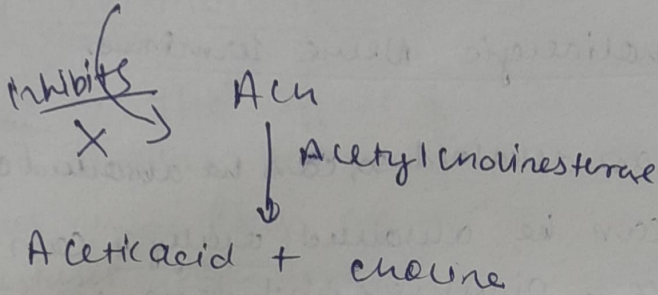 Inhibits
X
ACh
Acetylcholinesterase
Acetic acid + choline